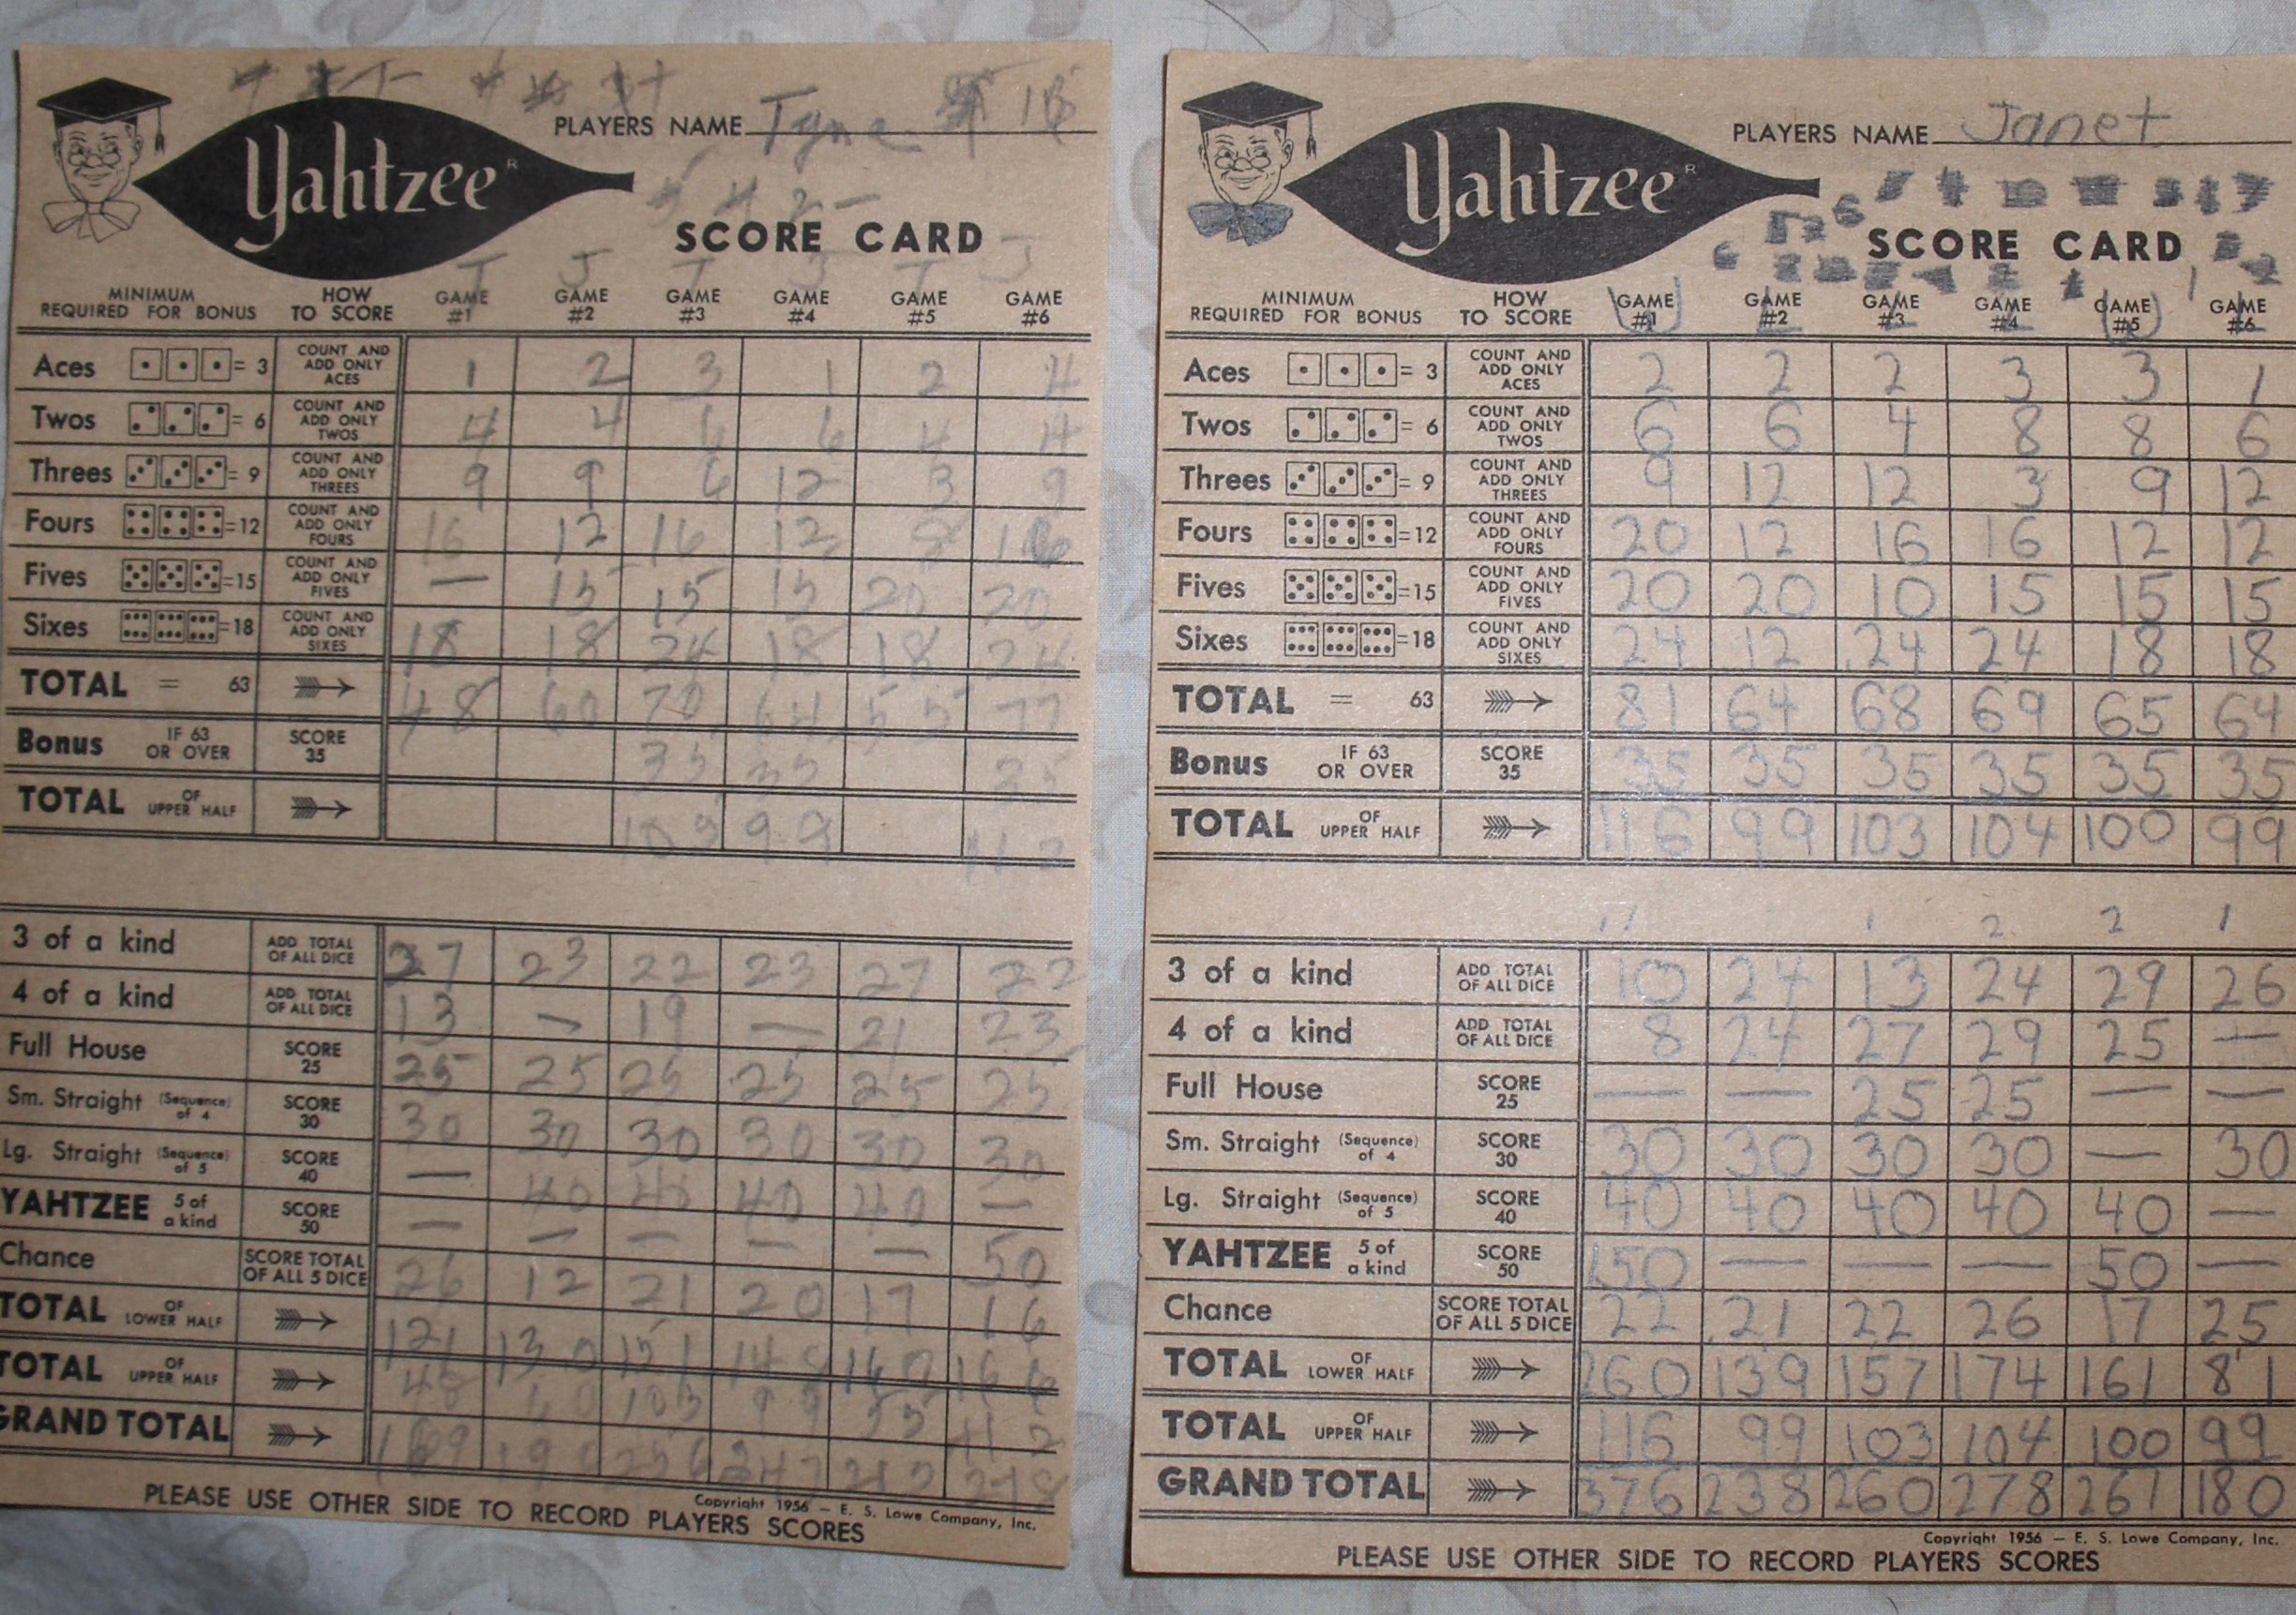 Yahtzee R
PLAYERS NAME Tyna
SCORE CARD
T J T J T J
MINIMUM REQUIRED FOR BONUS HOW TO SCORE GAME #1 GAME #2 GAME #3 GAME #4 GAME #5 GAME #6
Aces = 3 COUNT AND ADD ONLY ACES 1 2 3 1 2 4
Twos = 6 COUNT AND ADD ONLY TWOS 4 4 6 6 4 4
Threes = 9 COUNT AND ADD ONLY THREES 9 9 6 12 3 9
Fours =12 COUNT AND ADD ONLY FOURS 16 12 16 12 8 16
Fives =15 COUNT AND ADD ONLY FIVES — 15 15 15 20 20
Sixes =18 COUNT AND ADD ONLY SIXES 18 18 24 18 18 24
TOTAL = 63 48 60 70 64 55 77
Bonus IF 63 OR OVER SCORE 35 35 35 35
TOTAL OF UPPER HALF 99 112
3 of a kind ADD TOTAL OF ALL DICE 27 23 22 23 27 22
4 of a kind ADD TOTAL OF ALL DICE 13 — 19 — 21 23
Full House SCORE 25 25 25 25 25 25 25
Sm. Straight (Sequence) of 4 SCORE 30 30 30 30 30 30 30
Lg. Straight (Sequence) of 5 SCORE 40 — 40 40 40 40 —
YAHTZEE 5 of a kind SCORE 50 — — — — — 50
Chance SCORE TOTAL OF ALL 5 DICE 26 12 21 20 17 16
TOTAL OF LOWER HALF 121 130 151 148 160 166
TOTAL OF UPPER HALF 48 60 103 99 55 112
GRAND TOTAL 169 190 247 278
Copyright 1956 — E. S. Lowe Company, Inc.
PLEASE USE OTHER SIDE TO RECORD PLAYERS SCORES
Yahtzee R
PLAYERS NAME Janet
SCORE CARD
MINIMUM REQUIRED FOR BONUS HOW TO SCORE GAME #1 GAME #2 GAME #3 GAME #4 GAME #5 GAME #6
Aces = 3 COUNT AND ADD ONLY ACES 2 2 2 3 3 1
Twos = 6 COUNT AND ADD ONLY TWOS 6 6 4 8 8 6
Threes = 9 COUNT AND ADD ONLY THREES 9 12 12 3 9 12
Fours =12 COUNT AND ADD ONLY FOURS 20 12 16 16 12 12
Fives =15 COUNT AND ADD ONLY FIVES 20 20 10 15 15 15
Sixes =18 COUNT AND ADD ONLY SIXES 24 12 24 24 18 18
TOTAL = 63 81 64 68 69 65 64
Bonus IF 63 OR OVER SCORE 35 35 35 35 35 35 35
TOTAL OF UPPER HALF 116 99 103 104 100 99
11 1 2 2 1
3 of a kind ADD TOTAL OF ALL DICE 10 24 13 24 29 26
4 of a kind ADD TOTAL OF ALL DICE 8 24 27 29 25 —
Full House SCORE 25 — — 25 25 — —
Sm. Straight (Sequence) of 4 SCORE 30 30 30 30 30 — 30
Lg. Straight (Sequence) of 5 SCORE 40 40 40 40 40 40 —
YAHTZEE 5 of a kind SCORE 50 150 — — — 50 —
Chance SCORE TOTAL OF ALL 5 DICE 22 21 22 26 17 25
TOTAL OF LOWER HALF 260 139 157 174 161 81
TOTAL OF UPPER HALF 116 99 103 104 100 99
GRAND TOTAL 376 238 260 278 261 180
Copyright 1956 — E. S. Lowe Company, Inc.
PLEASE USE OTHER SIDE TO RECORD PLAYERS SCORES